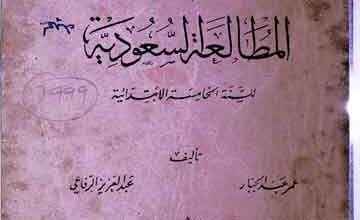 المطالعة السعودية
للسنة الخامسة الابتدائية
1999
تأليف
عمر عبد الجبار عبد العزيز الرفاعي